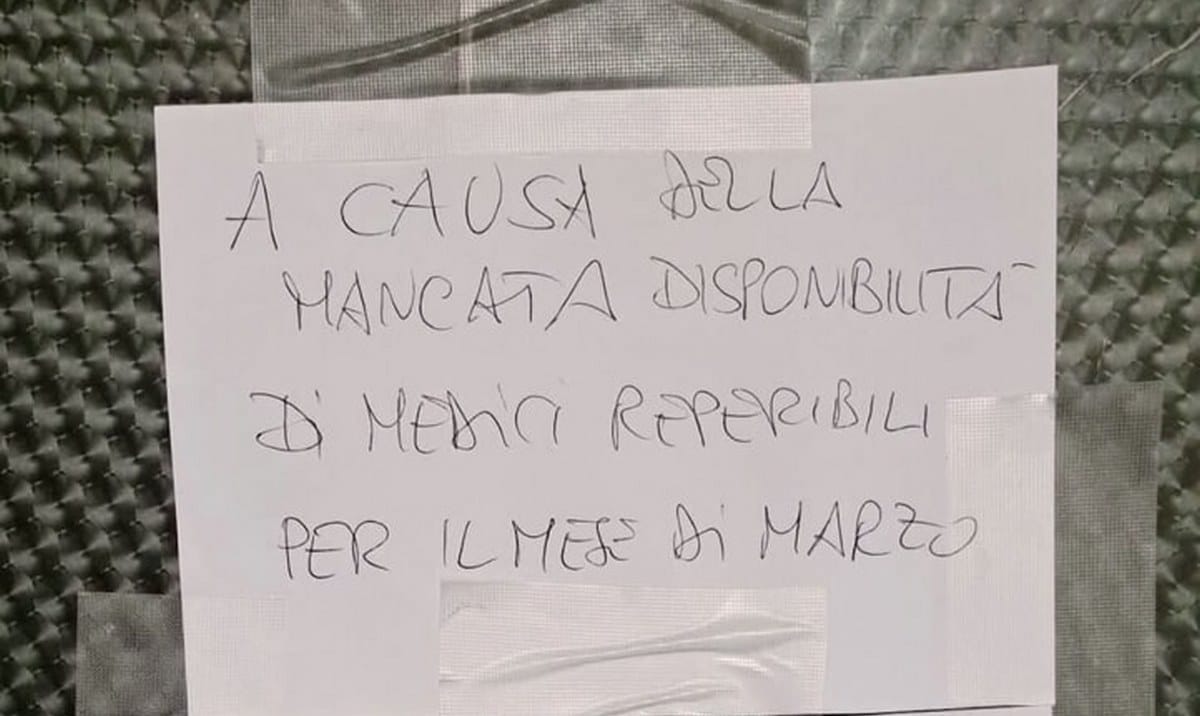 A CAUSA DELLA
MANCATA DISPONIBILITÀ
Di MEDiCi REPERIBILI
PER IL MESE Di MARZO